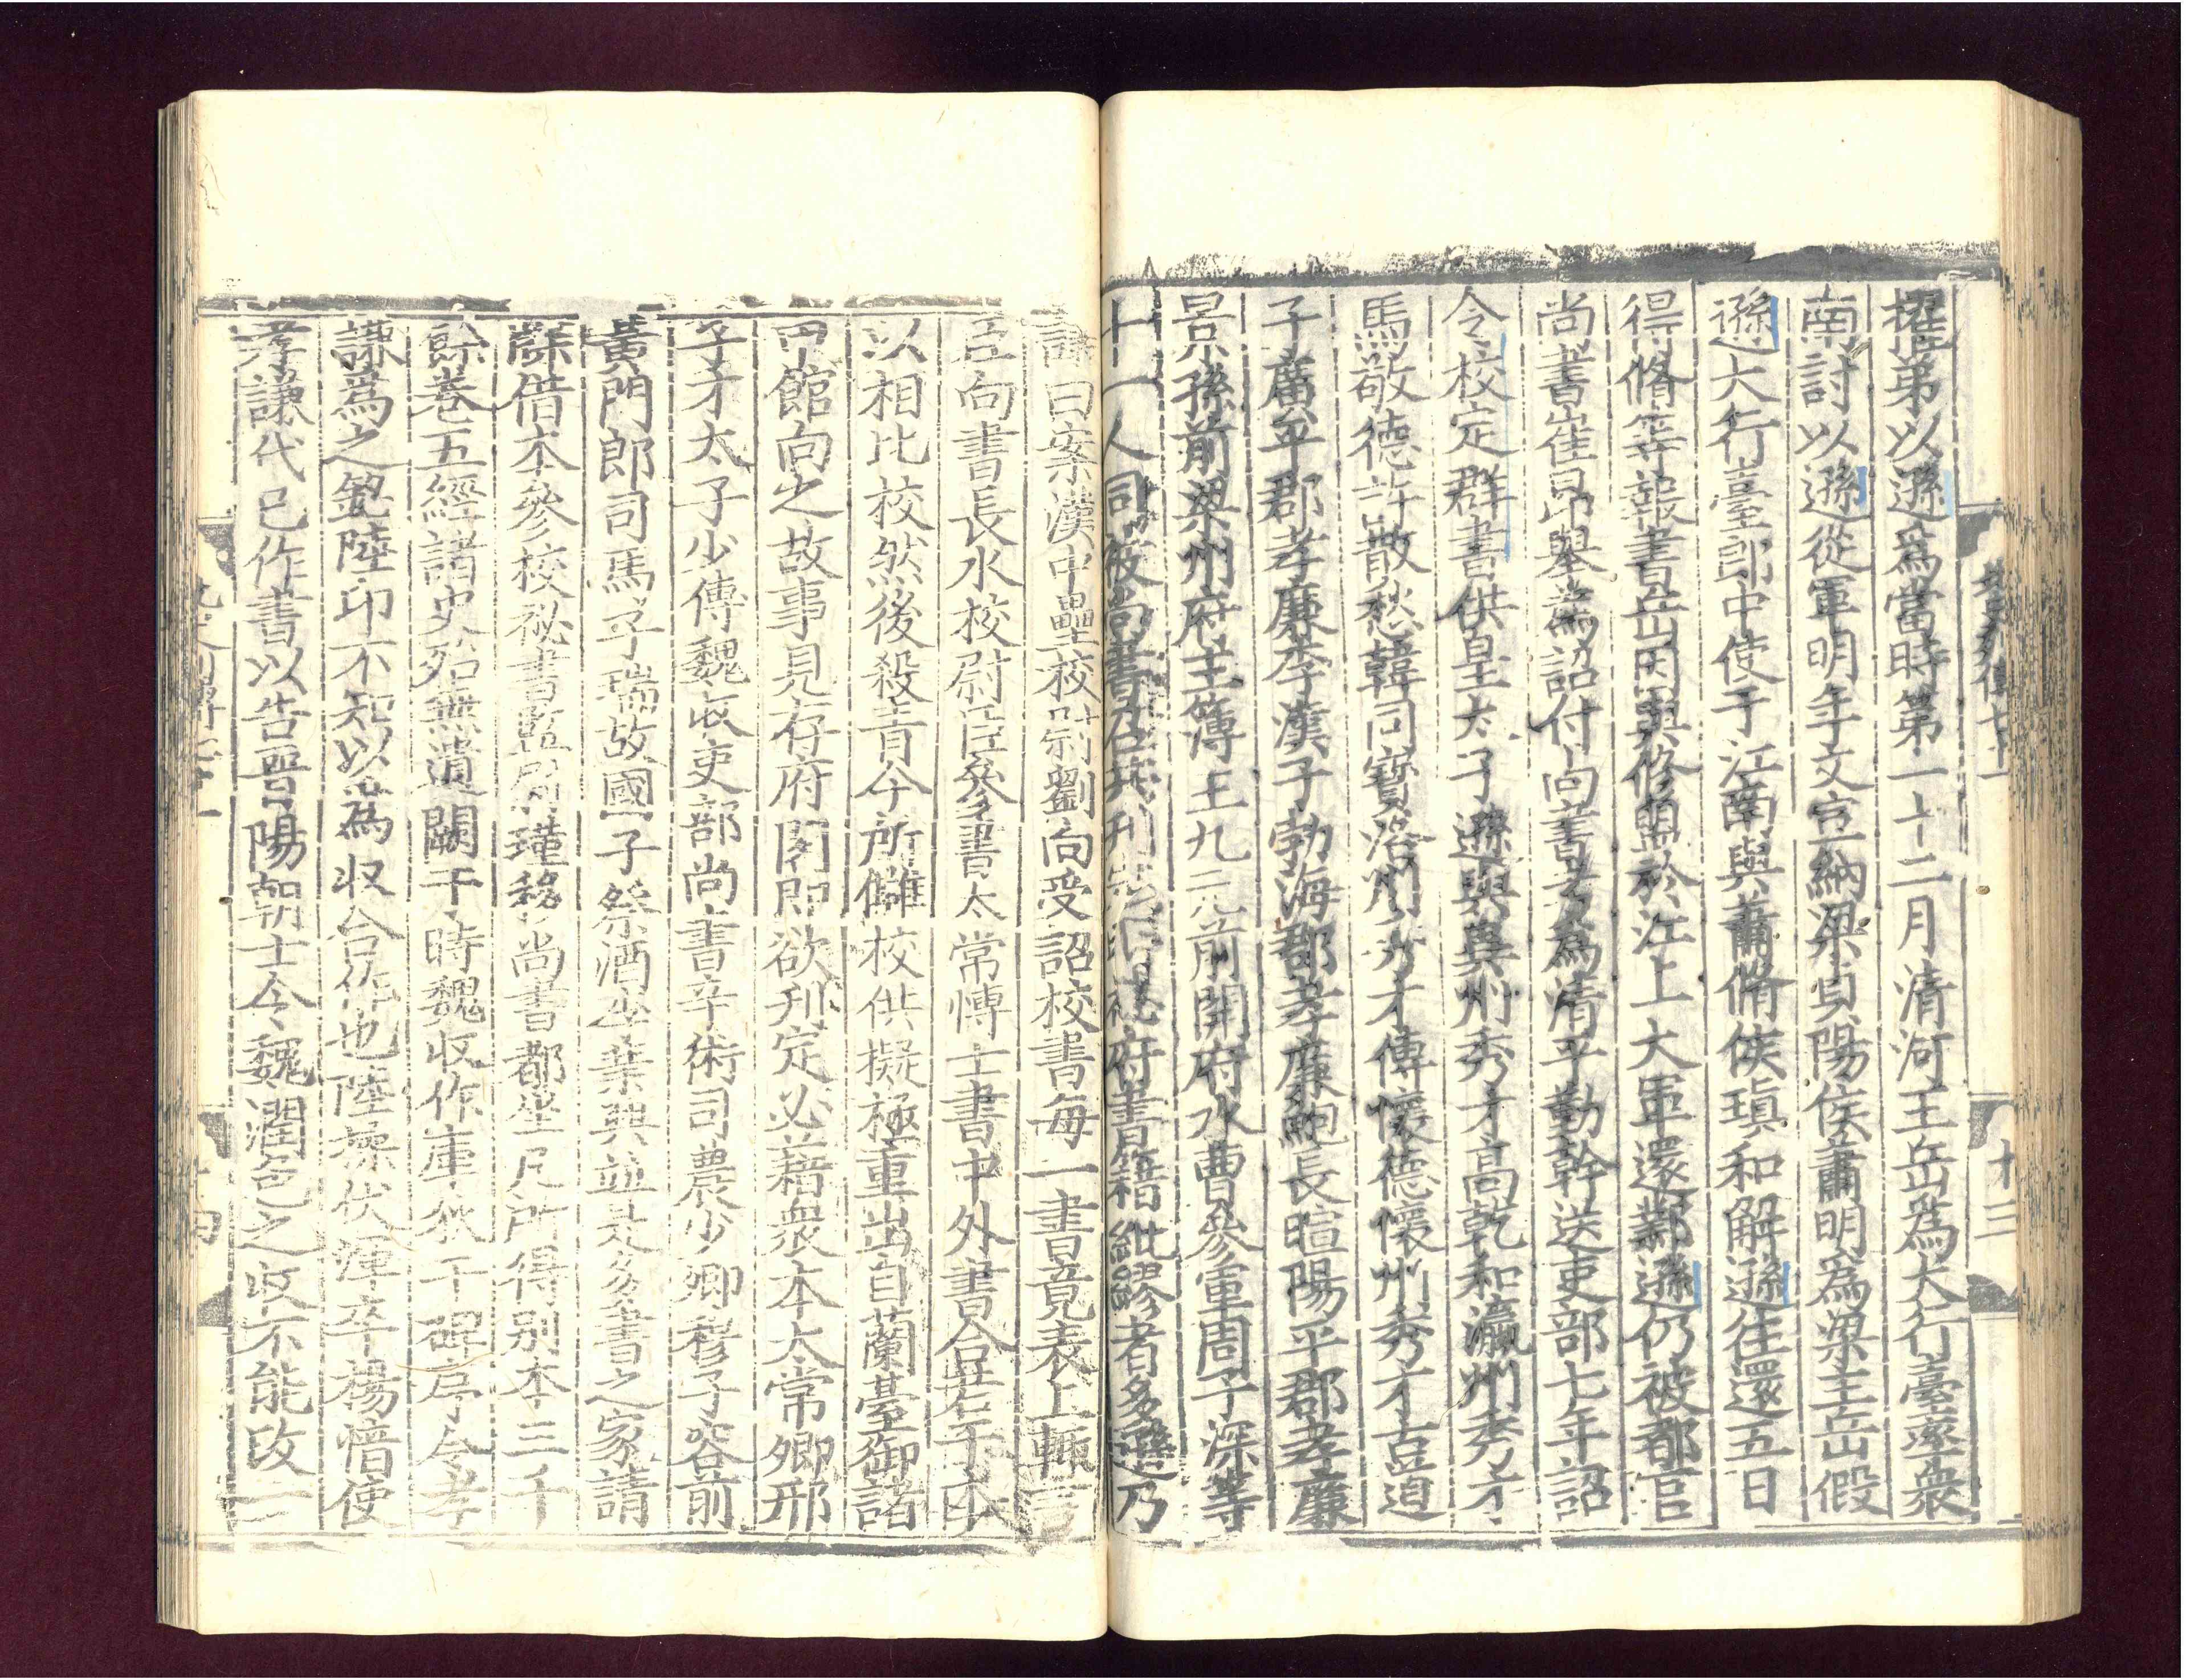 擢第以遜爲當時第一十二月清河王岳爲大行臺率衆
南討以遜從軍明年文宣納梁貞陽侯蕭明爲梁主岳假
遜大行臺郎中使于江南與蕭脩侯瑱和解遜往還五日
得脩等報書岳因與修盟於江上大軍還鄴遜仍被都官
尚書崔昂舉爲詔付尚書考爲清平勤幹送吏部七年詔
令校定群書供皇太子遜與兾州秀才高乾和瀛州秀才
馬敬德許散愁韓同寳洛州秀才傅懷德懷州秀才古道
子廣平郡孝廉李漢子勃海郡孝廉鮑長暄陽平郡孝廉
景孫前梁州府主簿王九元前開府水曹參軍周子深等
十一人同被尚書召共刊定時祕府書籍紕繆者多遜乃
議曰案漢中壘校尉劉向受詔校書每一書竟表上輒言
臣向書長水校尉臣參書太常博士書中外書合若干本
以相比校然後殺青今所讎校供擬極重出自蘭臺御諸
甲館向之故事見存府閣即欲刋定必藉衆本太常卿邢
子才太子少傅魏収吏部尚書辛術司農少卿穆子容前
黃門郎司馬子瑞故國子祭酒李業興並是多書之家請
牒借本參校祕書監尉瑾移尚書都坐凡所得別本三千
餘卷五經諸史殆無遺闕于時魏収作庫狄干碑序令孝
謙爲之銘陸卬不知以爲収合作也陸操伏渾卒楊愔使
孝謙代已作書以告晉陽朝士令魏潤色之収不能改一
十三